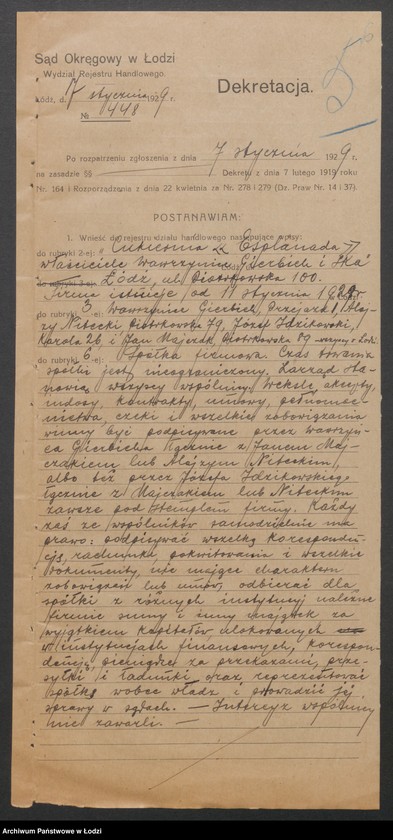 Sąd Okręgowy w Łodzi
Wydział Rejestru Handlowego.
Łódź, d. 7 stycznia 1929 r.
№ 448
5
Dekretacja.
Po rozpatrzeniu zgłoszenia z dnia 7 stycznia 1929 r.
na zasadzie §§ Dekretu z dnia 7 lutego 1919 roku
Nr. 164 i Rozporządzenia z dnia 22 kwietnia za Nr. 278 i 279 (Dz. Praw Nr. 14 i 37).
POSTANAWIAM:
1. Wnieść do rejestru działu handlowego następujące wpisy:
do rubryki 2-ej: „Cukiernia „Esplanada"
właściciele Wawrzyniec Gierbich i S-ka"
Łódź, ul. Piotrkowska 100.
Firma istnieje od 11 stycznia 192
do rubryki 3 Wawrzyniec Gierbich, Przejazd 1, Aloj-
zy Nitecki, Piotrkowska 79, Józef Idzikowski,
Karola 26 i Jan Majczak, Piotrkowska 89 w Łodzi
do rubryki 6-ej: Spółka firmowa. Czas trwania
spółki jest nieograniczony. Zarząd sta-
nowią wszyscy wspólnicy. Weksle, akcepty,
indosy, kontrakty, umowy, pełnomoc-
nictwa, czeki i wszelkie zobowiązania
winny być podpisywane przez Wawrzyń-
ca Gierbicha łącznie z Janem Maj-
czakiem lub Alojzym Niteckim,
albo też przez Józefa Idzikowskiego
łącznie z Majczakiem lub Niteckim
zawsze pod stemplem firmy. Każdy
zaś ze wspólników samodzielnie ma
prawo: podpisywać wszelką koresponden-
cję, rachunki, pokwitowania i wszelkie
dokumenty, nie mające charakteru
zobowiązań lub umów, odbierać dla
spółki z różnych instytucyj należne
firmie sumy i inny majątek za
wyjątkiem kapitałów ulokowanych
w instytucjach finansowych, korespon-
dencję, pieniądze za przekazami, prze-
syłki i ładunki, oraz reprezentować
spółkę wobec władz i prowadzić jej
sprawy w sądach. — Intercyz wspólnicy
nie zawarli. —
Archiwum Państwowe w Łodzi